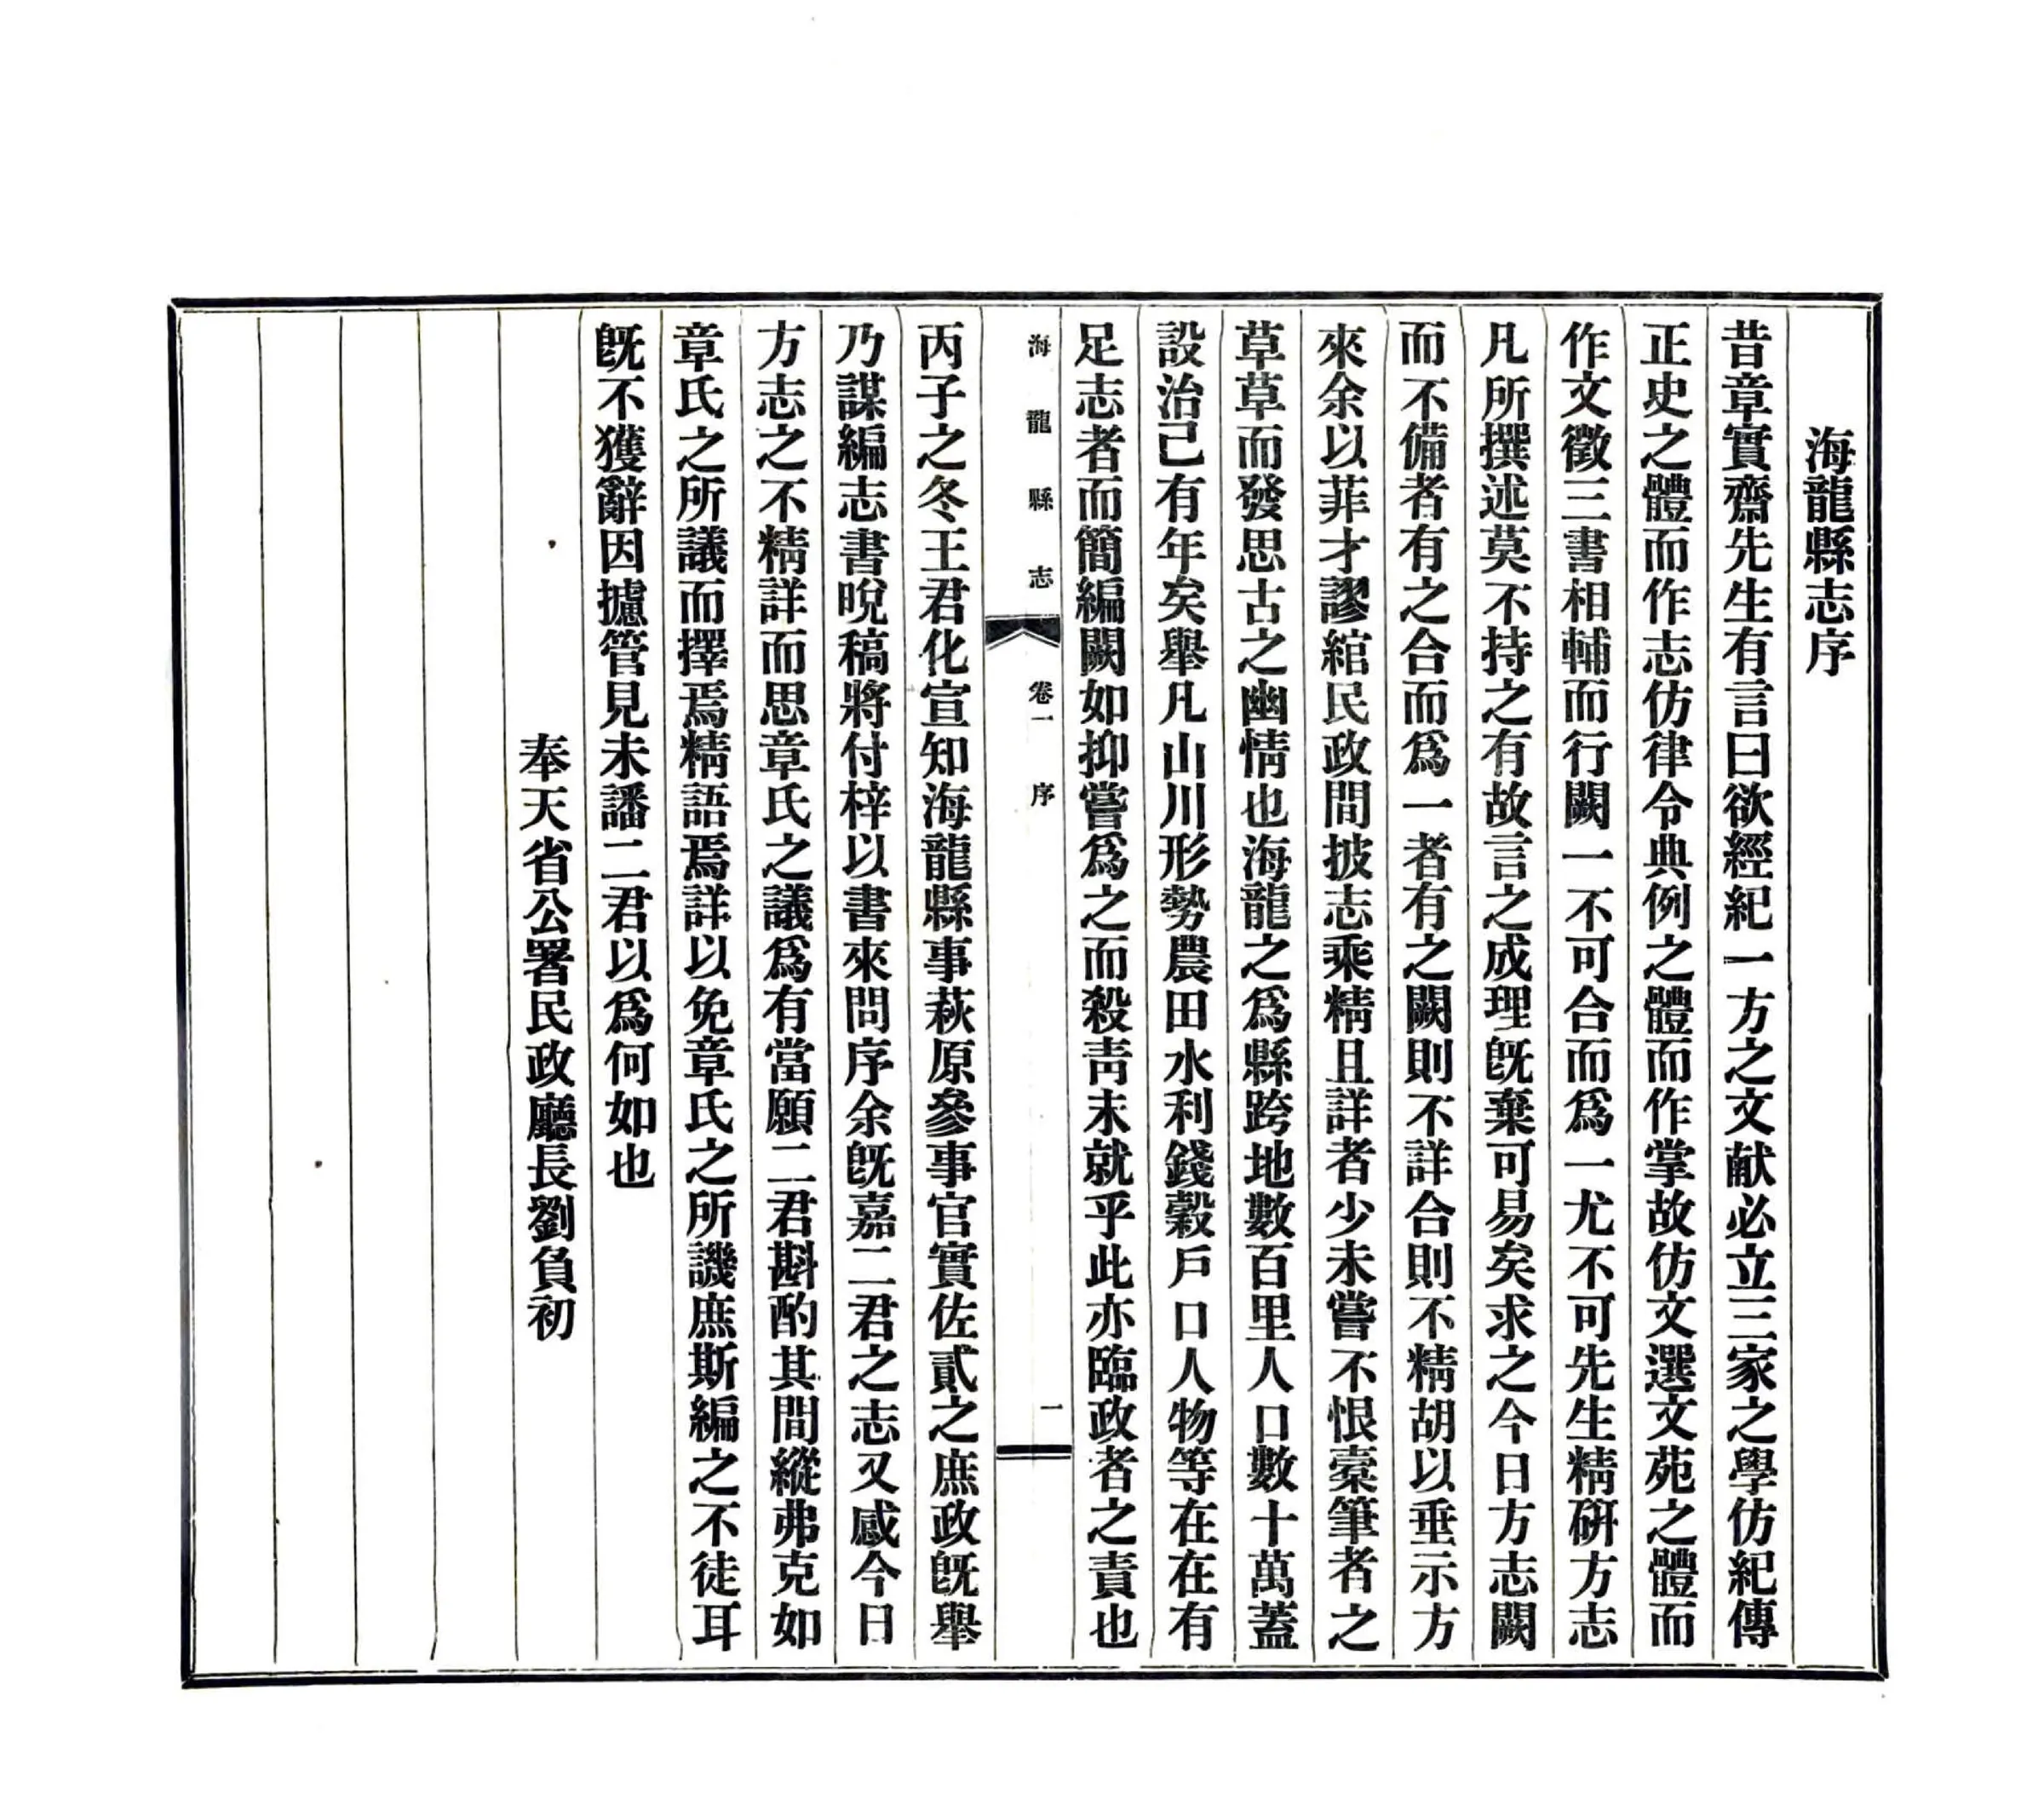 海龍縣志序
昔章實齋先生有言曰欲經紀一方之文献必立三家之學仿紀傳
正史之體而作志仿律令典例之體而作掌故仿文選文苑之體而
作文徵三書相輔而行闕一不可合而爲一尤不可先生精硏方志
凡所撰述莫不持之有故言之成理旣棄可易矣求之今日方志闕
而不備者有之合而爲一者有之闕則不詳合則不精胡以垂示方
來余以菲才謬綰民政間披志乘精且詳者少未嘗不恨槖筆者之
草草而發思古之幽情也海龍之爲縣跨地數百里人口數十萬蓋
設治己有年矣舉凡山川形勢農田水利錢穀戶口人物等在在有
足志者而簡編闕如抑嘗爲之而殺靑未就乎此亦臨政者之責也
海龍縣志
卷一
序
一
丙子之冬王君化宣知海龍縣事萩原參事官實佐貳之庶政旣舉
乃謀編志書晚稿將付梓以書來問序余旣嘉二君之志又感今日
方志之不精詳而思章氏之議爲有當願二君斟酌其間縱弗克如
章氏之所議而擇焉精語焉詳以免章氏之所譏庶斯編之不徒耳
旣不獲辭因攄管見未譒二君以爲何如也
奉天省公署民政廳長劉負初